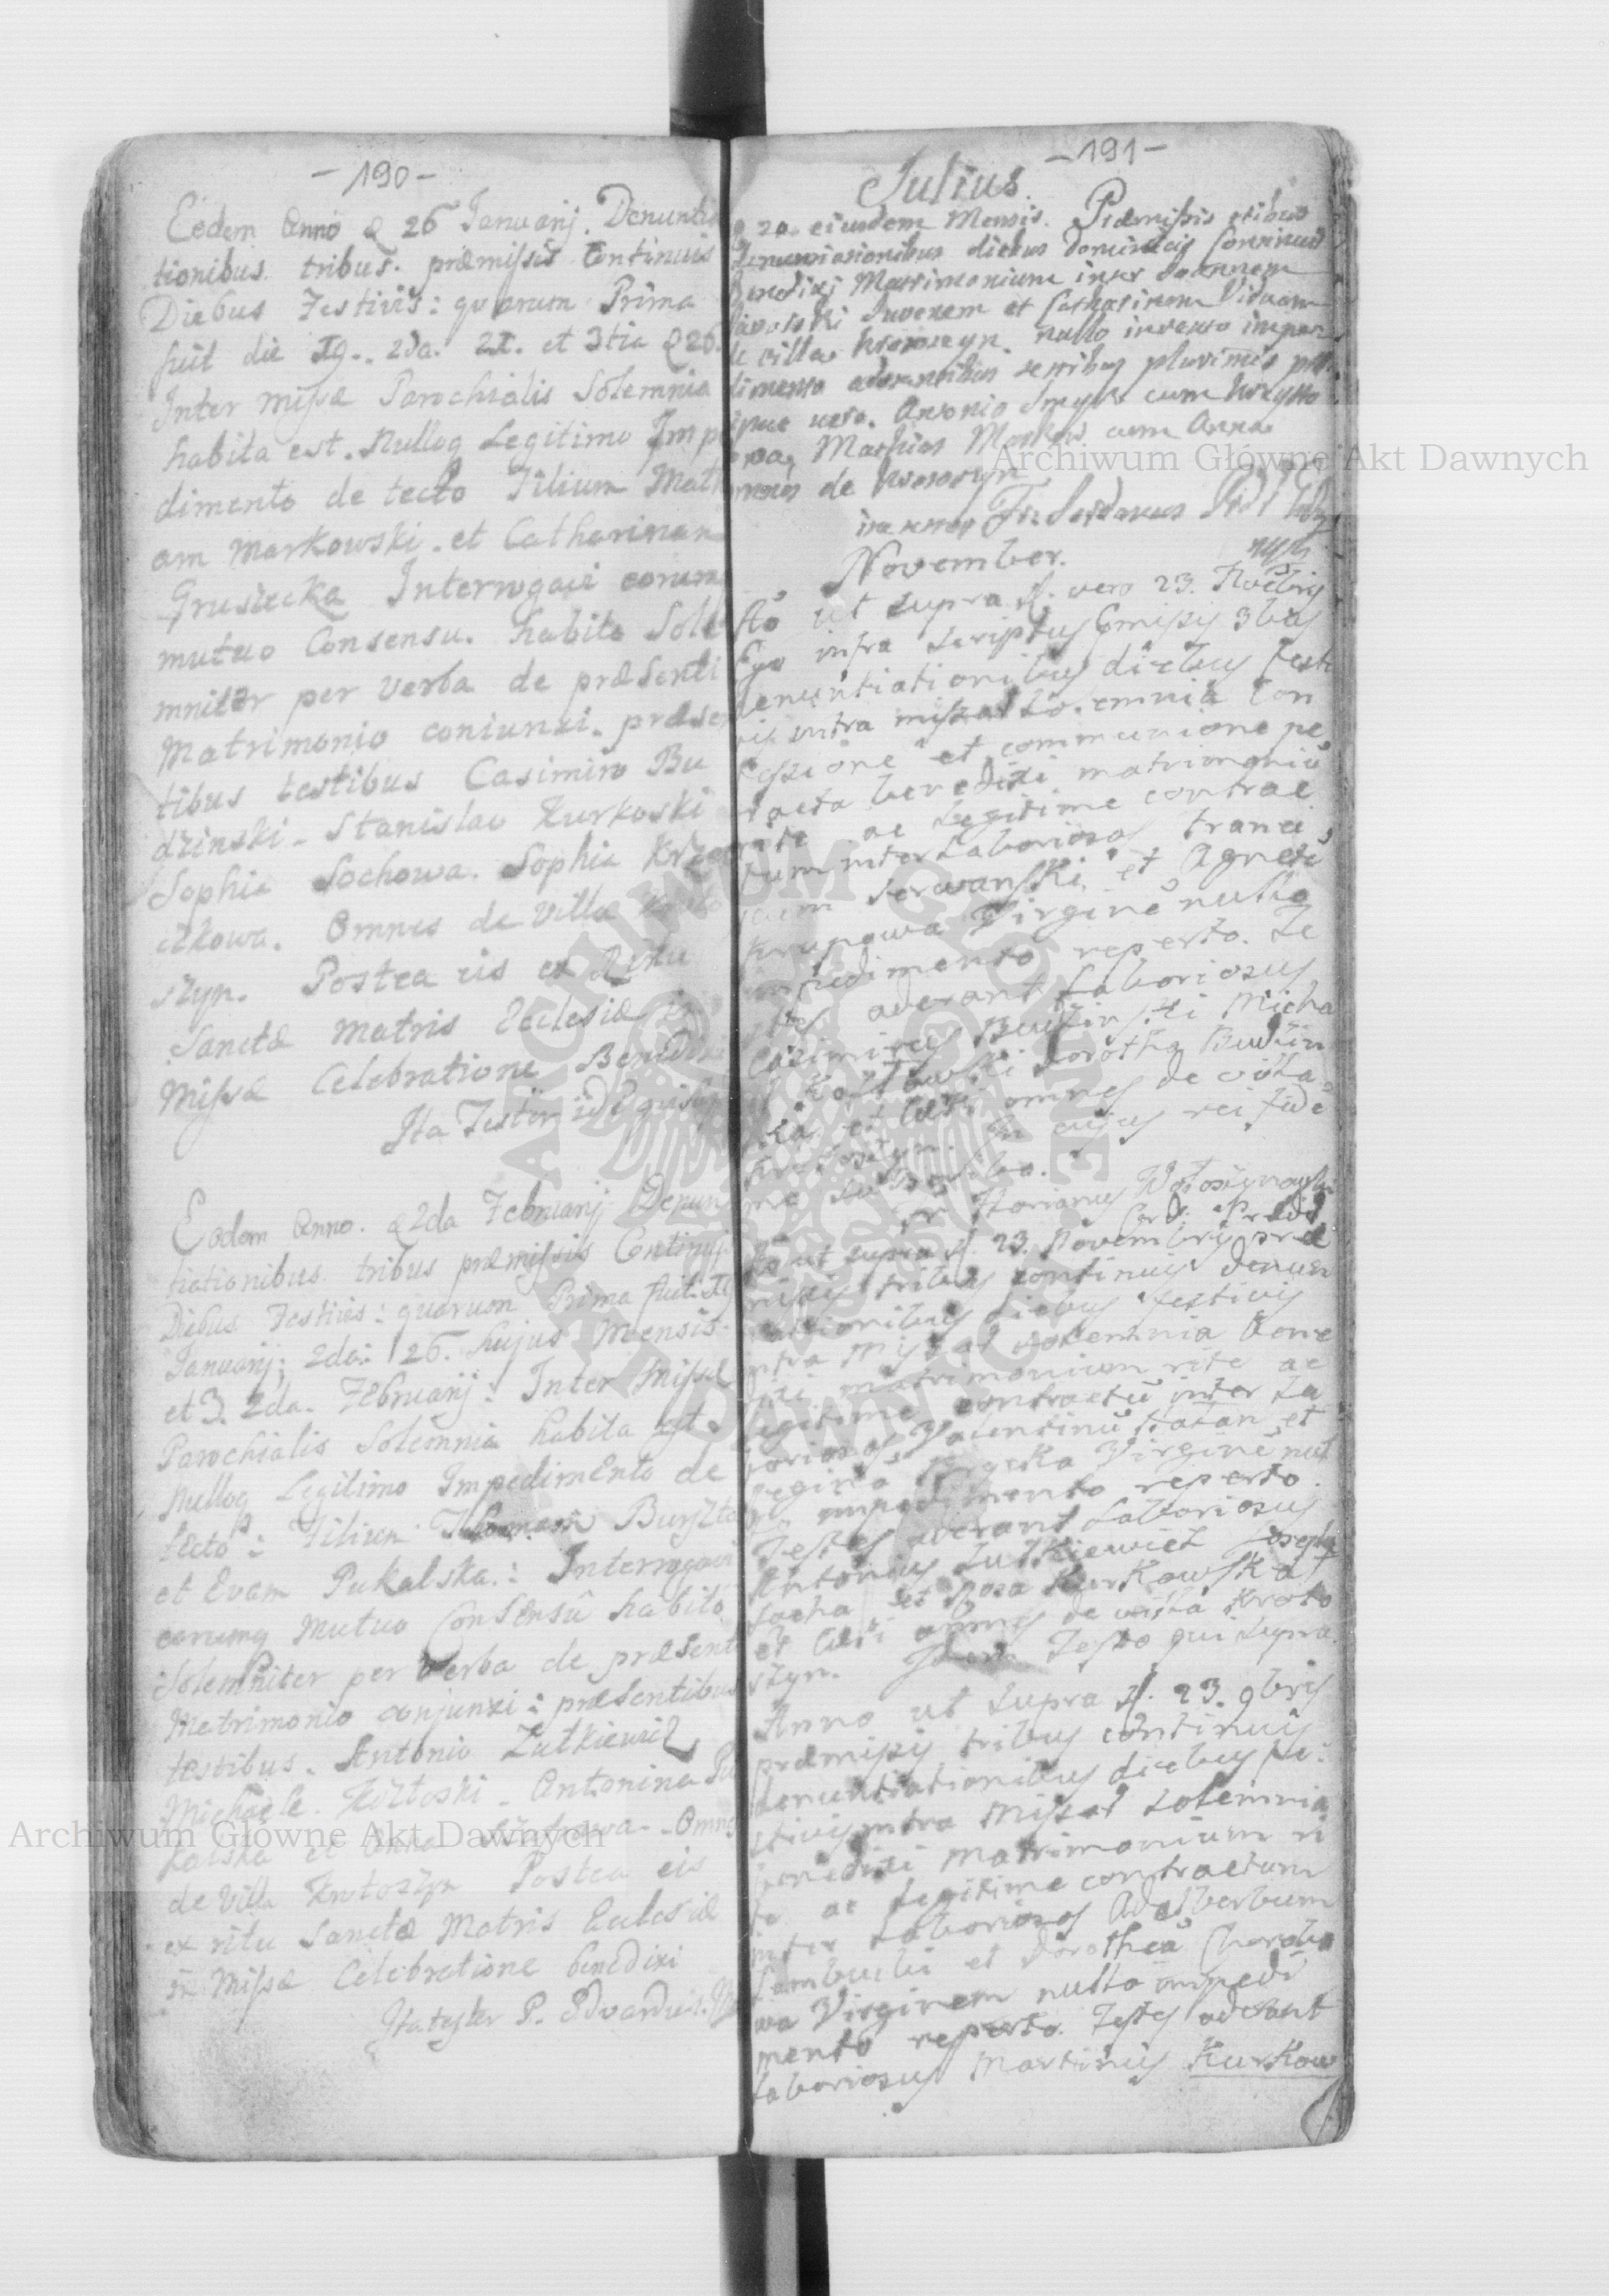 - 190 -
Eodem Anno d 26 Januarij. Denuntia
tionibus tribus. præmissis Continuis
Diebus Festivis: quarum Prima
fuit die 19.. 2da. 21. et 3tia d 26.
Inter missæ Parochialis Solemnia
habita est. Nulloq Legitimo Impe
dimento de tecto Filium Math
am Markowski. et Catharinam
Grusiecka Interrogavi eorumq
mutuo Consensu. habito Sole
mniter per verba de præsenti
Matrimonio coniunxi. præsen
tibus testibus Casimiro Bu
dzinski - Stanislao Kurkoski
Sophia Sochowa. Sophia
czkowa. Omnes de Villa Kroto
szyn. Postea eis ex Ritu
Sanctæ Matris Ecclesiæ in
Missæ Celebratione Benedixi
Ita Testor
Eodem Anno. d 2da Februarij Denun
tiationibus tribus præmissis Continuis
Diebus Festivis: quarum Prima fuit. 19
Januarij; 2da: 26. hujus Mensis.
et 3. 2da. Februarij: Inter Missæ
Parochialis Solemnia habita est.
Nulloq Legitimo Impedimento de
tecto: Filium Thomam Buszta
et Evam Pukalska: Interrogavi
eorumq Mutuo Consensu habito
Solemniter per Verba de præsenti
Matrimonio conjunxi: præsentibus
testibus. Antonio Zutkiewicz
Michaele. Koztoski - Antonina Pu
kalska et Anna - Omnes
de Villa Krotoszyn Postea eis
ex ritu Sanctæ Matris Ecclesiæ
in Missæ Celebratione benedixi
Ita testor P. Edvardus
- 191 -
Julius.
d 20. eiusdem Mensis. Præmissis tribus
Denuntiationibus diebus Dominicis Continuis
Benedixi Matrimonium inter Joannem
Juvenem et Catharinam Viduam
de villa Krotoszyn. nullo invento impe
dimento aderantibus testibus plurimis præ
cipue vero. Antonio Smyk cum
Mathias cum Anna
omnes de Krotoszyn
November.
Ao ut supra d. vero 23. Novbris
Ego infra scriptus pmissis 3bus
denuntiationibus diebus festi
vis intra missar solemnia Con
fessione et communione pe
racta benedixi matrimoniu
rite ac legitime contrac
tum inter Laboriosos Franci
scum Serwanski et Agnetê
Krupowa Virginê nullo
impedimento reperto. Te
stes aderant Laboriosus
Casimirus Budzinski Micha
el Kostowski Dorotha Budzin
ska et Cæteri omnes de villa
Krotoszyn. In cujus rei fidê
me subscribo.
Fr Florianus
Ao ut supra d. 23. Novembris præ
missis tribus continuis denun
tiationibus diebus festivis
intra missar solemnia bene
dixi matrimonium rite ac
legitime contractû inter La
boriosos Valentinû et
Regina Virginê nul
lo impedimento reperto.
Testes aderant Laboriosus
Antonius Zutkiewicz Joseph
Socha et Rosa Kurkowska
et Cæteri omnes de villa Kroto
szyn. Idem Testor qui supra.
Anno ut supra d. 23. 9bris
præmissis tribus continuis
denuntiationibus diebus fe
stivis intra Missar solemnia
benedixi matrimonium ri
te ac legitime contractum
inter Laboriosos Adalbertum
et Dorotheâ
wa Virginem nullo impedi
mento reperto. Testes aderant
Laboriosus Martinus Kurkow
Archiwum Główne Akt Dawnych
Archiwum Główne Akt Dawnych
ARCHIWUM GŁÓWNE AKT DAWNYCH